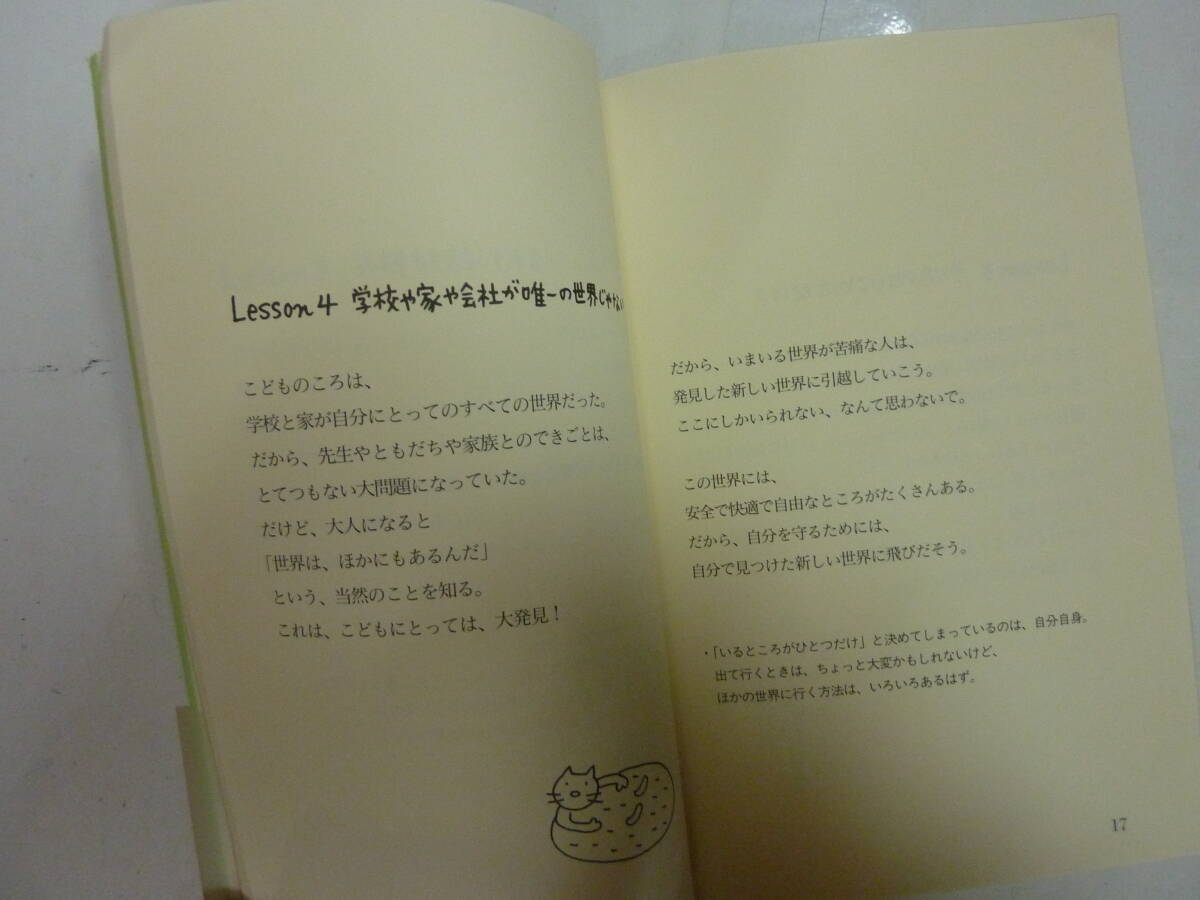 Lesson 4 学校や家や会社が唯一の世界じゃない
こどものころは、
学校と家が自分にとってのすべての世界だった。
だから、先生やともだちや家族とのできごとは、
とてつもない大問題になっていた。
だけど、大人になると
「世界は、ほかにもあるんだ」
という、当然のことを知る。
これは、こどもにとっては、大発見！
だから、いまいる世界が苦痛な人は、
発見した新しい世界に引越していこう。
ここにしかいられない、なんて思わないで。
この世界には、
安全で快適で自由なところがたくさんある。
だから、自分を守るためには、
自分で見つけた新しい世界に飛びだそう。
・「いるところがひとつだけ」と決めてしまっているのは、自分自身。
出て行くときは、ちょっと大変かもしれないけど、
ほかの世界に行く方法は、いろいろあるはず。
17